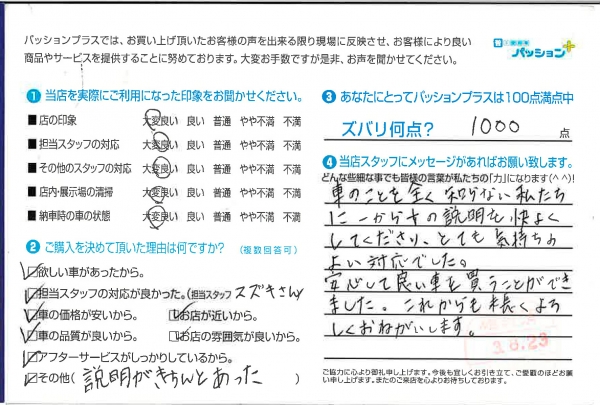 パッションプラスでは、お買い上げ頂いたお客様の声を出来る限り現場に反映させ、お客様により良い
商品やサービスを提供することに努めております。大変お手数ですが是非、お声を聞かせてください。
パッション
❶ 当店を実際にご利用になった印象をお聞かせください。
■ 店の印象 大変良い 良い 普通 やや不満 不満
■ 担当スタッフの対応 大変良い 良い 普通 やや不満 不満
■ その他のスタッフの対応 大変良い 良い 普通 やや不満 不満
■ 店内・展示場の清掃 大変良い 良い 普通 やや不満 不満
■ 納車時の車の状態 大変良い 良い 普通 やや不満 不満
❷ ご購入を決めて頂いた理由は何ですか? (複数回答可)
欲しい車があったから。
担当スタッフの対応が良かった。(担当スタッフ スズキさん)
車の価格が安いから。 お店が近いから。
車の品質が良いから。 お店の雰囲気が良いから。
アフターサービスがしっかりしているから。
その他( 説明がきちんとあった )
❸ あなたにとってパッションプラスは100点満点中
ズバリ何点? 1000 点
❹ 当店スタッフにメッセージがあればお願い致します。
どんな些細な事でも皆様の言葉が私たちの「力」になります(^^)!
車のことを全く知らない私たち
に一から十の説明を快よく
してくださり、とても気持ちの
よい対応でした。
安心して良い車を買うことができ
ました。これからも長くよろ
しくおねがいします。
3.6.23
ご協力に心より御礼申し上げます。今後も宜しくお引き立て、ご愛顧のほどお願
い申し上げます。またのご来店を心よりお待ちしております。